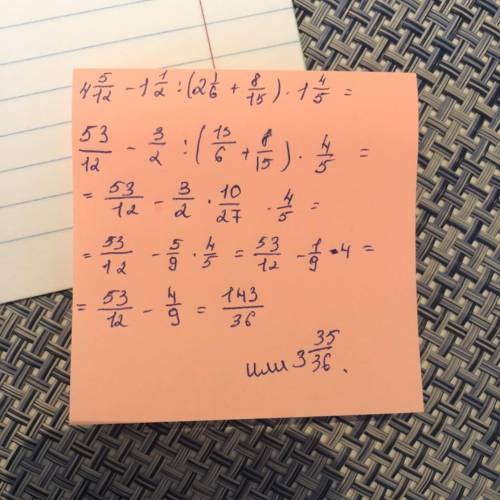 4 5/12 − 1 1/2 : (2 1/6 + 8/15) · 1 4/5 =
53/12 − 3/2 : (13/6 + 8/15) · 4/5 =
= 53/12 − 3/2 · 10/27 · 4/5 =
= 53/12 − 5/9 · 4/5 = 53/12 − 1/9 · 4 =
= 53/12 − 4/9 = 143/36
или 3 35/36.